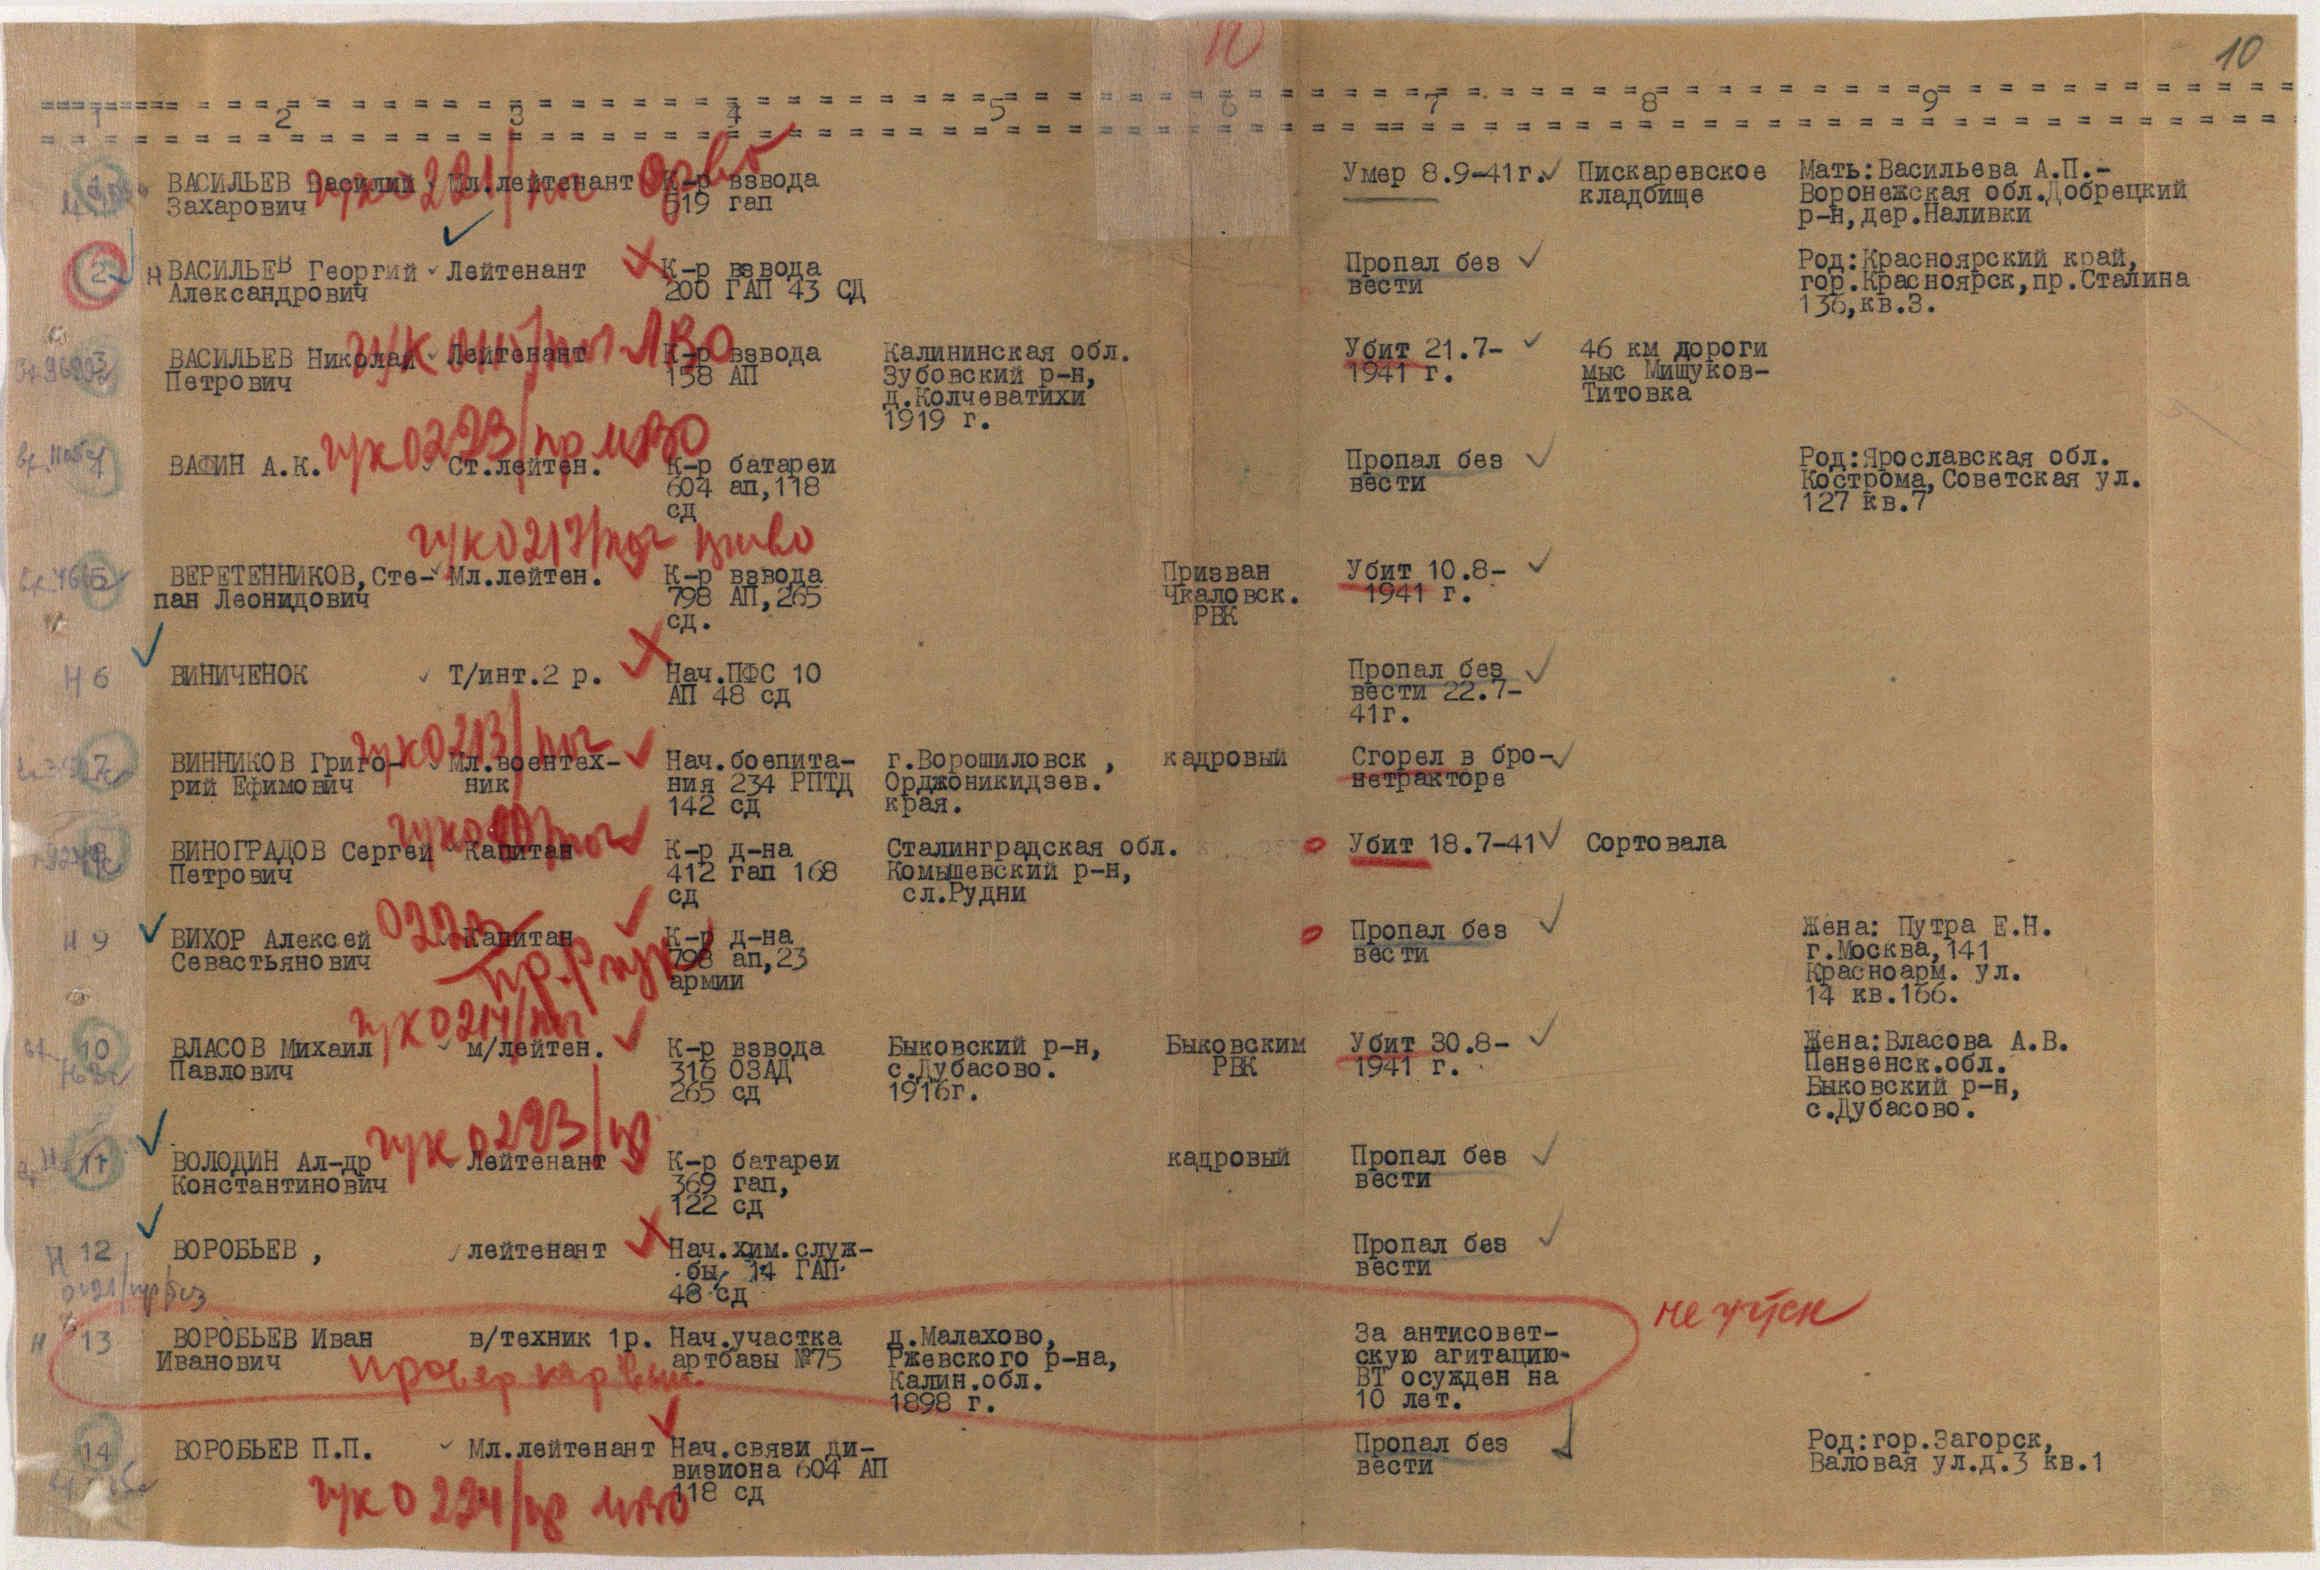 10
1 2 3 4 5 6 7 8 9
1 ВАСИЛЬЕВ Василий Мл.лейтенант К-р взвода Умер 8.9-41г. Пискаревское Мать:Васильева А.П.-
Захарович 519 гап кладбище Воронежская обл.Добрецкий
р-н,дер.Наливки
2 н ВАСИЛЬЕВ Георгий Лейтенант К-р взвода Пропал без Род:Красноярский край,
Александрович 200 ГАП 43 СД вести гор.Красноярск,пр.Сталина
136,кв.3.
3 ВАСИЛЬЕВ Николай Лейтенант К-р взвода Калининская обл. Убит 21.7- 46 км дороги
Петрович 158 АП Зубовский р-н, 1941 г. мыс Мищуков-
д.Колчеватихи Титовка
1919 г.
гук 0223/пр МВО
4 ВАФИН А.К. Ст.лейтен. К-р батареи Пропал без Род:Ярославская обл.
604 ап,118 вести Кострома,Советская ул.
сд 127 кв.7
гук 0217/
5 ВЕРЕТЕННИКОВ,Сте- Мл.лейтен. К-р взвода Призван Убит 10.8-
пан Леонидович 798 АП,265 Чкаловск. 1941 г.
сд. РВК
Н 6 ВИНИЧЕНОК Т/инт.2 р. Нач.ПФС 10 Пропал без
АП 48 сд вести 22.7-
41г.
гук 0213/
7 ВИННИКОВ Григо- Мл.воентех- Нач.боепита- г.Ворошиловск , кадровый Сгорел в бро-
рий Ефимович ник ния 234 РПТД Орджоникидзев. нетракторе
142 сд края.
8 ВИНОГРАДОВ Сергей Капитан К-р д-на Сталинградская обл. Убит 18.7-41 Сортовала
Петрович 412 гап 168 Комышевский р-н,
сд сл.Рудни
Н 9 ВИХОР Алексей Капитан К-р д-на Пропал без Жена: Путра Е.Н.
Севастьянович 798 ап,23 вести г.Москва,141
армии Красноарм. ул.
14 кв.166.
гук 0214/
10 ВЛАСОВ Михаил м/лейтен. К-р взвода Быковский р-н, Быковским Убит 30.8- Жена:Власова А.В.
Павлович 316 ОЗАД с.Дубасово. РВК 1941 г. Пензенск.обл.
265 сд 1916г. Быковский р-н,
с.Дубасово.
гук 0223/пр
11 ВОЛОДИН Ал-др Лейтенант К-р батареи кадровый Пропал без
Константинович 369 гап, вести
122 сд
Н 12 ВОРОБЬЕВ , лейтенант Нач.хим.служ- Пропал без
бы, 14 ГАП вести
48 сд
н 13 ВОРОБЬЕВ Иван в/техник 1р. Нач.участка д.Малахово, За антисовет-
Иванович артбазы №75 Ржевского р-на, скую агитацию-
Калин.обл. ВТ осужден на
1898 г. 10 лет.
14 ВОРОБЬЕВ П.П. Мл.лейтенант Нач.связи ди- Пропал без Род:гор.Загорск,
визиона 604 АП вести Валовая ул.д.3 кв.1
118 сд
гук 0224/пр МВО